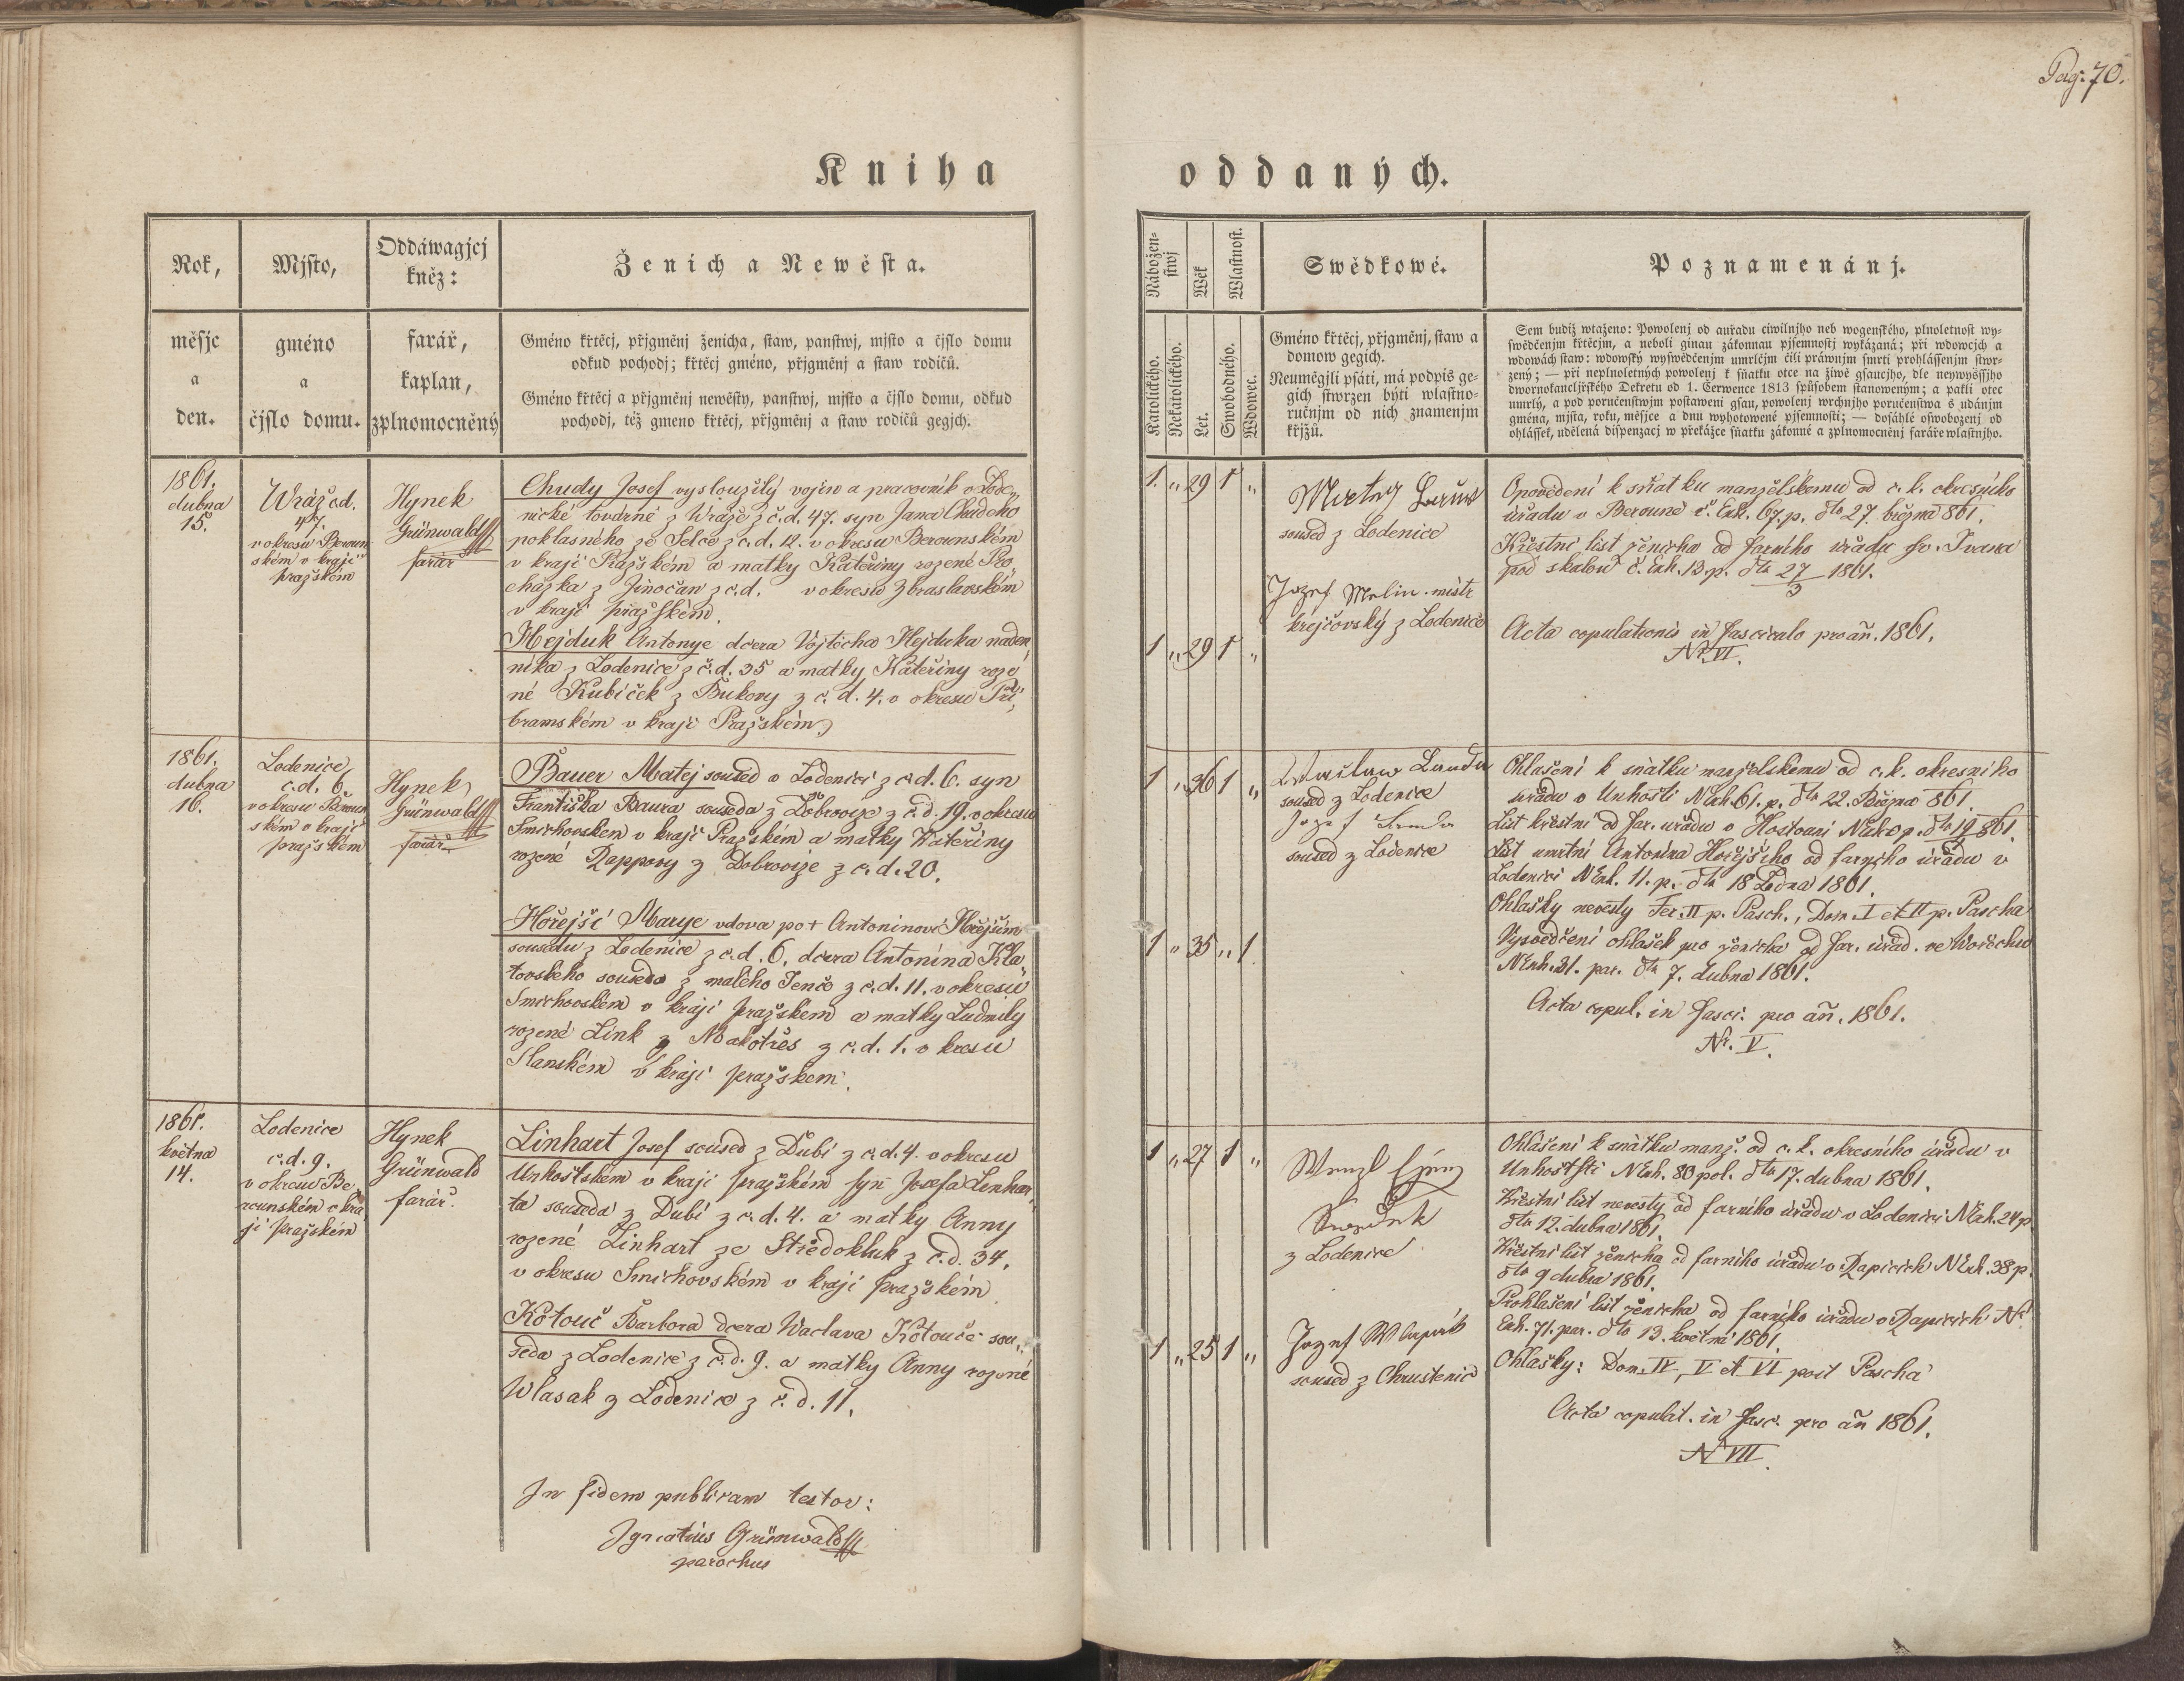 Pag. 70.
Kniha oddaných.
Rok,
měsjc
a
den.
Mjsto,
gméno
a
čjslo domu.
Oddáwagjcj
kněz:
farář,
kaplan,
zplnomocněný
Ženich a Newěsta.
Gméno křtěcj, přjgměnj ženicha, staw, panstwj, mjsto a čjslo domu
odkud pochodj; křtěcj gméno, přjgměnj a staw rodičů.
Gméno křtěcj a přjgměnj newěsty, panstwj, mjsto a čjslo domu, odkud
pochodj, též gmeno křtěcj, přjgměnj a staw rodičů gegjch.
Nábožen-
stwj
Wěk
Wlastnost.
Katolického.
Nekatolického.
Let.
Swobodného.
Wdowec.
Swědkowé.
Gméno křtěcj, přjgměnj, staw a
domow gegich.
Neumějgli psáti, má podpis ge-
gich stwrzen býti wlastno-
ručnjm od nich znamenjm
křjžů.
Poznamenánj.
Sem budiž wtaženo: Powolenj od auřadu ciwilnjho neb wogenského, plnoletnost wy-
swědčenjm křtěcjm, a neboli ginau zákonnau pjsemnostj wykázaná; při wdowcjch a
wdowách staw: wdowský wyswědčenjm umrlčjm čili práwnjm smrti prohlássenjm stwr-
zený; — při neplnoletných powolenj k sňatku otce na žiwě gsaucjho, dle neywyššjho
dwornokancljřského Dekretu od 1. Čerwence 1813 spůsobem stanoweným; a pakli otec
umrlý, a pod poručenstwjm postaweni gsau, powolenj wrchnjho poručenstwa s udánjm
gména, mjsta, roku, měsjce a dnu wyhotowené pjsemnosti; — dosáhlé oswobozenj od
ohlášsek, udělená dispenzacj w překážce sňatku zákonné a zplnomocněnj faráře wlastnjho.
1861.
dubna
15.
Wráž č.d.
47.
v okresu Beroun
ském v kraji
pražském
Hynek
Grünwald
farář
Chudy Josef vysloužilý vojín a pracovník v Lode„
nické továrně z Wráže z č.d. 47. syn Jana Chudeho
poklasného ze Selce z č.d. 12. v okresu Berounském
v kraji Pražském a matky Kateřiny rozené Pro„
cházka z Jinočan z č.d. v okresu Zbraslavském
v kraji pražském.
Hejduk Antonye dcera Vojtěcha Hejduka náden„
níka z Lodenice z č.d. 35 a matky Kateřiny roze
né Kubíček z Bukovy z č.d. 4. v okresu Při„
bramském v kraji Pražském
1. „ 29 1 „
1 „ 29 1 „
soused z Lodenice
Jozef Melin mistr
krejčovský z Lodenice
Opovědení k sňatku manželskému od c. k. okresního
úřadu v Berouně č. Exh. 67. p. dto 27. března 861.
Křestní list ženicha od farního úřadu sv. Ivana
pod skalou č. Exh. 13. p. dto 27/3 1861.
Acta copulationis in fasciculo pro añ. 1861.
Nr. VI.
1861.
dubna
16.
Lodenice
č.d. 6.
v okresu Beroun
ském v kraji
pražském
Hynek
Grünwald
farář
Bauer Matej soused v Lodenici z č.d. 6. syn
Františka Baura souseda z Dobrovíze z č.d. 19. v okresu
Smichovskem v kraji Pražském a matky Kateřiny
rozené Rappovy z Dobrovize z č.d. 20.
Hořejší Marye vdova po + Antoninovi Hořejším
sousedu z Lodenice z č.d. 6. dcera Antonína Kla„
tovského souseda z malého Jenče z č.d. 11. v okresu
Smichovském v kraji pražském a matky Ludmily
rozené Link z Makotřes z č.d. 1. v kresu
Slanském v kraji pražskem.
1 „ 36 1 „
1 „ 35 „ 1
Waclaw Lauda
soused z Lodenice
soused z Lodenice
Ohlášení k sňatku manželskemu od c. k. okresního
úřadu v Unhošti NExh. 61. p. dto 22. Března 861.
List křestní od far. uřadu v Hostouni
List umrtní Antonína Hořejšího od farního úřadu v
Lodenici NExh. 11. p. dto 18 Ledna 1861.
Ohlašky nevěsty Fer. II p. Pasch., Dom. I et II p. Pascha
Vysvědčení ohlašek pro ženicha od far. úřad. ve Wořechu
NExh. 31. par. dto 7. dubna 1861.
Acta copul. in fasci. pro añ. 1861.
Nr. V.
1861.
května
14.
Lodenice
č.d. 9.
v okresu Be„
rounském v kra
ji pražském
Hynek
Grünwald
farář.
Linhart Josef soused z Dubí z č.d. 4. v okresu
Unhoštském v kraji pražském syn Josefa Linhar„
ta souseda z Dubí z č.d. 4. a matky Anny
rozené Linhart ze Středokluk z č.d. 34.
v okresu Smichovském v kraji pražském
Kotouč Barbora dcera Waclava Kotouče sou„
seda z Lodenice z č.d. 9. a matky Anny rozené
Wlasak z Lodenice z č.d. 11.
1 „ 27 1 „
1 „ 25 1 „
z Lodenice
Jozef
soused z Chrustenic
Ohlášení k sňátku manž. od c. k. okresního úřadu v
Unhoštsti NExh. 80 pol. dto 17. dubna 1861.
Křestní list nevěsty od farního úřadu v Lodenici NExh. 24 p.
dto 12. dubna 1861.
Křestní list ženicha od farního úřadu v Rapicích NExh. 38 p.
dto 9 dubna 1861.
Prohlašení list ženicha od farního úřadu v Rapicích Nr.
Exh. 71. par. dto 13. května 1861.
Ohlašky: Dom. IV, V et VI post Pascha
Acta copulat. in fasc. pro añ 1861.
Nr VII.
In fidem publicam testor:
Ignatius Grünwald
parochus